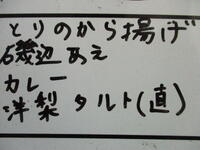 とりのから揚げ
磯辺あえ
カレー
洋梨タルト(直)